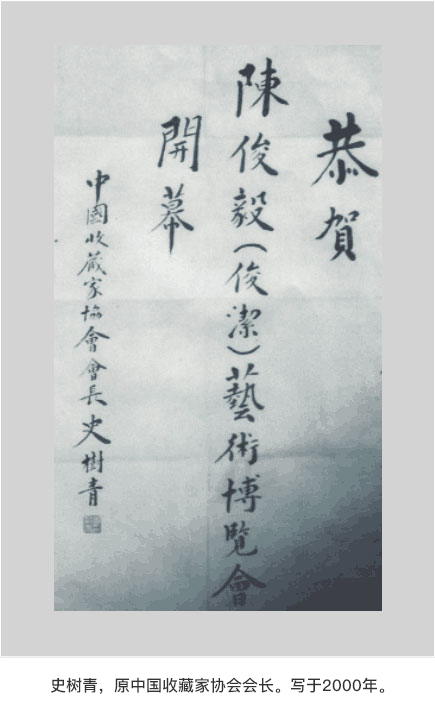 恭賀
陳俊毅(俊潔)藝術博覽會
開幕
中國收藏家協會會長史樹青
史树青，原中国收藏家协会会长。写于2000年。